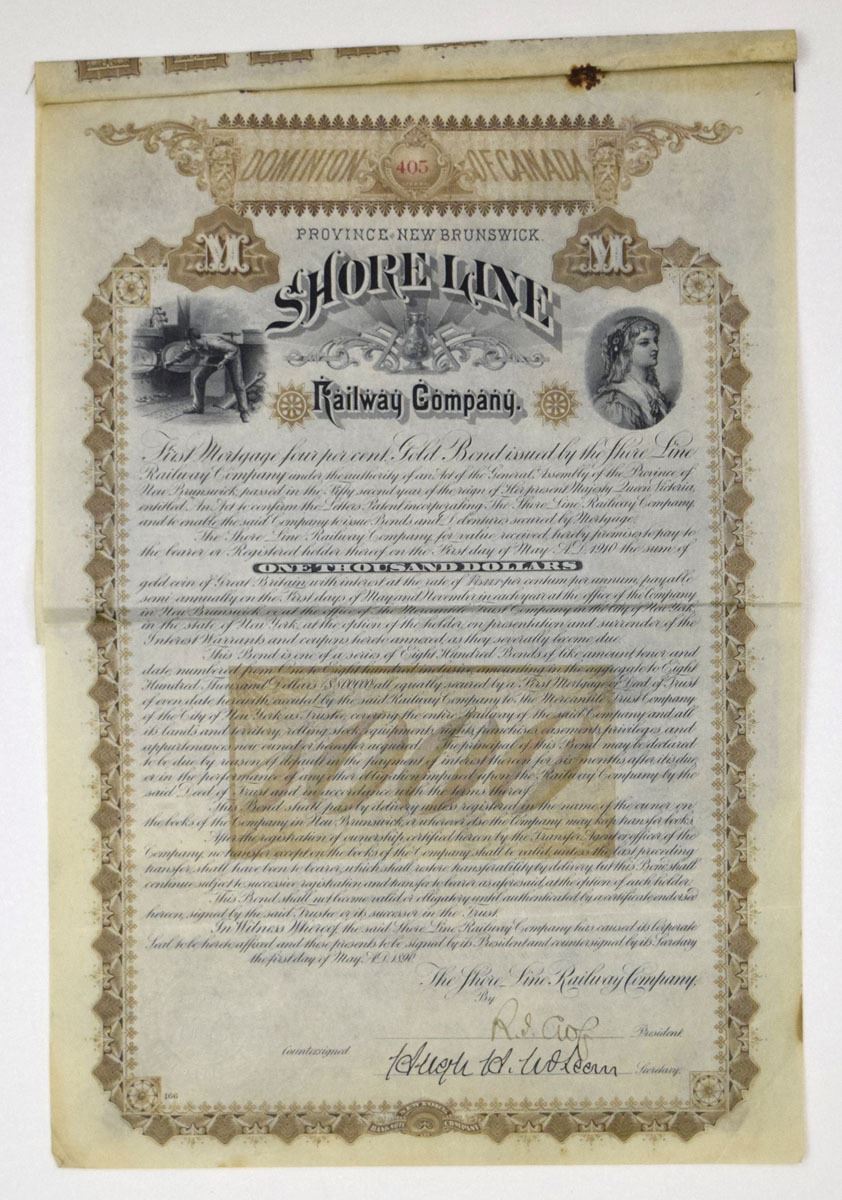 DOMINION 405 OF CANADA
M M
PROVINCE NEW BRUNSWICK.
SHORE LINE
Railway Company.
First Mortgage four per cent. Gold Bond issued by the Shore Line
Railway Company under the authority of an Act of the General Assembly of the Province of
New Brunswick, passed in the Fifty second year of the reign of Her present Majesty Queen Victoria,
entitled. An Act to confirm the Letters Patent incorporating The Shore Line Railway Company,
and to enable the said Company to issue Bonds and Debentures secured by Mortgage.
The Shore Line Railway Company for value received, hereby promises to pay to
the bearer or Registered holder thereof on the First day of May A.D. 1910 the sum of
ONE THOUSAND DOLLARS
gold coin of Great Britain, with interest at the rate of four per centum per annum, payable
semi annually on the First days of May and November in each year at the office of the Company
in New Brunswick, or at the office of the Mercantile Trust Company in the City of New York,
in the state of New York, at the option of the holder, on presentation and surrender of the
Interest Warrants and coupons hereto annexed, as they severally become due.
This Bond is one of a series of Eight Hundred Bonds of like amount, tenor and
date, numbered from One to Eight hundred inclusive, amounting in the aggregate to Eight
Hundred Thousand Dollars ($800,000) all equally secured by a First Mortgage or Deed of Trust
of even date herewith, executed by the said Railway Company to The Mercantile Trust Company
of the City of New York as Trustee, covering the entire Railway of the said Company and all
its lands and territory, rolling stock, equipments, rights, franchises, easements, privileges and
appurtenances, now owned or hereafter acquired. The principal of this Bond may be declared
to be due by reason of default in the payment of interest thereon for six months after its due,
or in the performance of any other obligation imposed upon the Railway Company by the
said Deed of Trust and in accordance with the terms thereof.
This Bond shall pass by delivery unless registered in the name of the owner on
the books of the Company in New Brunswick, or wherever else the Company may keep transfer books.
After the registration of ownership certified hereon by the Transfer Agent or officer of the
Company, no transfer except on the books of the Company shall be valid, unless the last preceding
transfer shall have been to bearer, which shall restore transferability by delivery, but this Bond shall
continue subject to successive registration and transfer to bearer as aforesaid, at the option of each holder.
This Bond shall not become valid or obligatory until authenticated by a certificate endorsed
hereon, signed by the said Trustee or its successor in the Trust.
In Witness Whereof, the said Shore Line Railway Company has caused its Corporate
Seal to be hereto affixed and these presents to be signed by its President and countersigned by its Secretary
the first day of May, A.D. 1890
The Shore Line Railway Company,
By
President
Countersigned
Hugh H. McLean Secretary.
166
BANK NOTE COMPANY